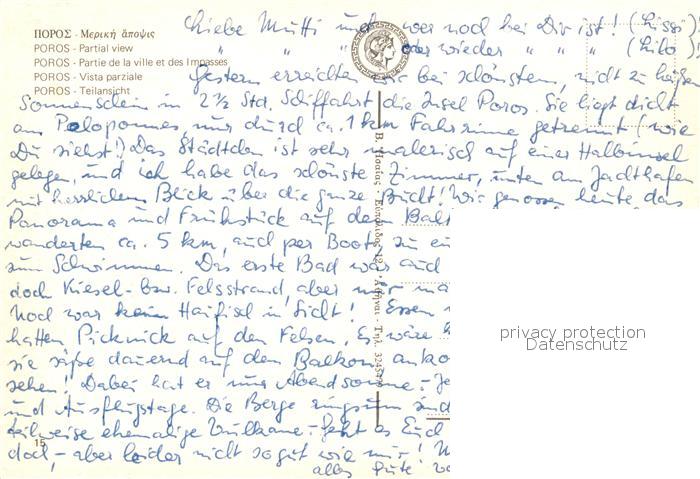 ΠΟΡΟΣ - Μερική άποψις
POROS - Partial view
POROS - Partie de la ville et des Impasses
POROS - Vista parziale
POROS - Teilansicht
Liebe Mutti und wer noch bei Dir ist! (Lissi)
" " " oder wieder " " " (Lilo)
Gestern erreichten wir bei schönstem, nicht zu heißem
Sonnenschein in 2 ½ Std. Schiffahrt die Insel Poros. Sie liegt dicht
am Peloponnes, nur durch ca. 1 km Fahrrinne getrennt (wie
Du siehst!) Das Städtchen ist sehr malerisch auf einer Halbinsel
gelegen, und ich habe das schönste Zimmer, unten am Jachthafen
mit herrlichem Blick über die ganze Bucht! Wir genossen heute das
Panorama und Frühstück auf dem Balk
wanderten ca. 5 km, auch per Boot, zu ei
zum Schwimmen. Das erste Bad war auch
doch Kiesel- bzw. Felsstrand, aber nur
Noch war kein Haifisch in Sicht! Essen
hatten Picknick auf den Felsen. Es wäre
sie säße dauernd auf dem Balkon
sehen! Dabei hat er nur Abendsonne. - Je
und Ausflugstage. Die Berge ringsum sind
teilweise ehemalige Vulkane. - Geht es Euch
doch, - aber leider nicht so gut wie mir!
alles Gute
15
privacy protection
Datenschutz